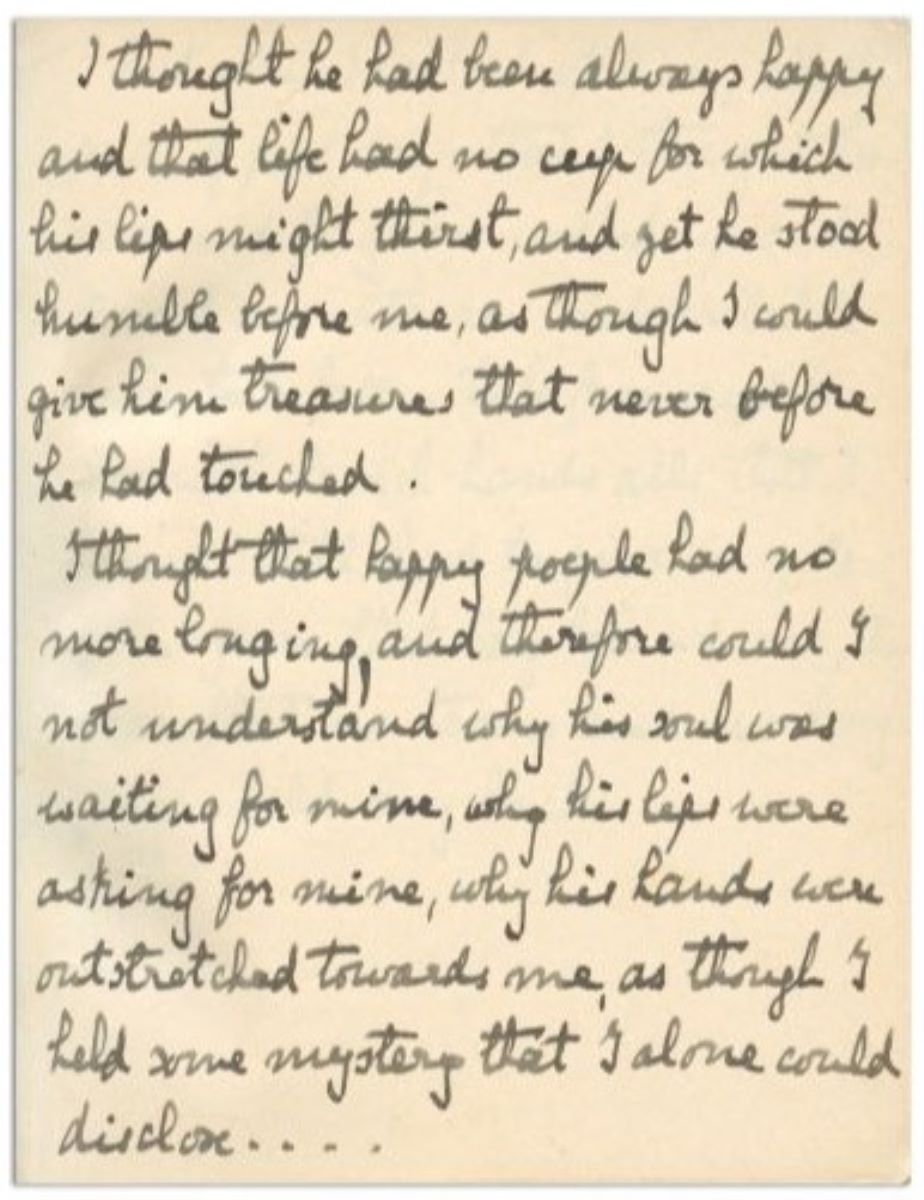 I thought he had been always happy
and that life had no cup for which
his lips might thirst, and yet he stood
humble before me, as though I could
give him treasures that never before
he had touched.
I thought that happy poeple had no
more longing, and therefore could I
not understand why his soul was
waiting for mine, why his lips were
asking for mine, why his hands were
outstretched towards me, as though I
held some mystery that I alone could
disclose....